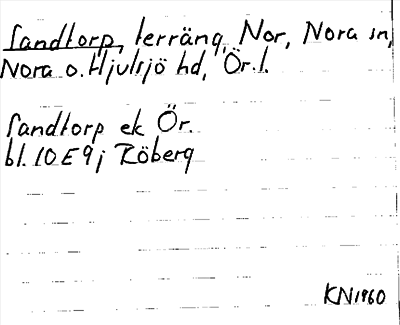 Sandtorp, terräng, Nor, Nora sn,
Nora o. Hjulsjö hd, Ör. l.
Sandtorp ek Ör.
bl. 10E9j Röberg
KN1960